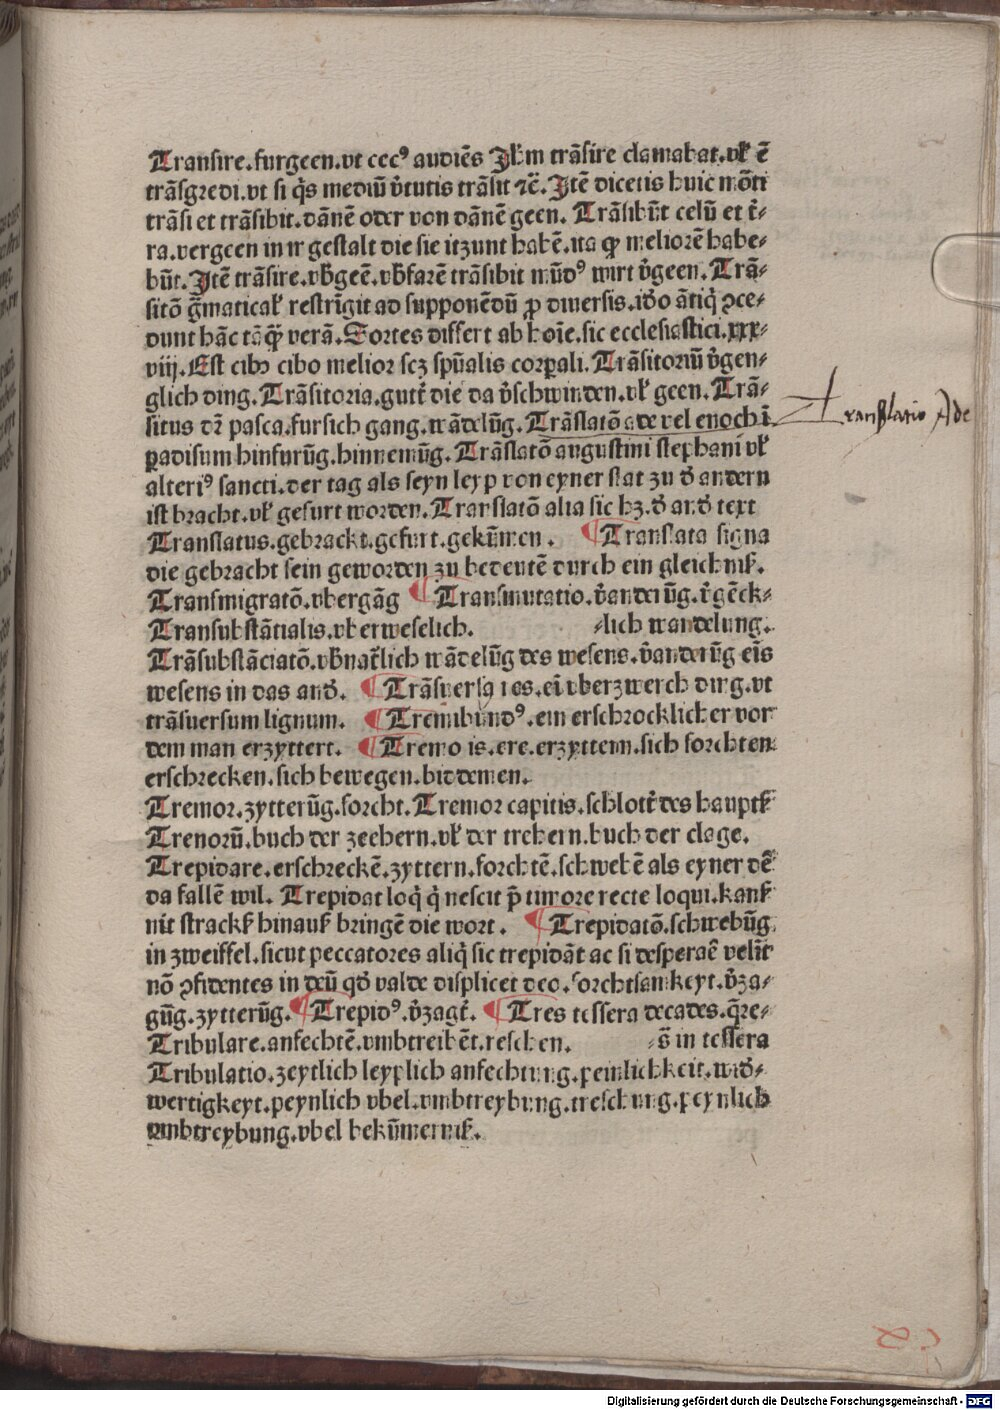 Transire.furgeen.vt cecꝰ audiēs Jhm trāsire clamabat.vl' ē
trāsgredi.vt si q̇s mediū v̓tutis trāsit ⁊c̄.Jtē dicetis huic mōti
trāsi et trāsibit.dānē oder von dānē geen. Trāsibūt celū et t̓-
ra.vergeen in ir gestalt die sie itzunt habē.ita ꝙ meliorē habe-
būt.Jtē trāsire.vb̓geē.vb̓farē trāsibit mūdꝰ wirt v̓geen.Trā-
sitō g̃maticał restrīgit ad supponēdū ꝓ diuersis.iđo ātiq̇ ꝯce-
dunt hāc tāꝙ̃ verā.Sortes differt ab hoīe.sic ecclesiastici.xxx-
viij.Est cibꝰ cibo melior scz spūalis corꝑali.Trāsitoriū v̓gen-
glich ding.Trāsitoria.gutt̓ die da v̓schwinden.vl' geen.Trā-
situs dr̄ pasca.fursich gang.wādelūg.Trāslatō ade vel enoch ī
ꝑadisum hinfurūg.hinnemūg.Trāslatō augustini stephani vl'
alteriꝰ sancti.der tag als seyn leyp von eyner stat zu đ andern
ist bracht.vl' gefurt worden.Translatō alia sic hz.đ anđ text
Translatus.gebracht.gefurt.gekūmen. ¶Translata signa
die gebracht sein geworden zu bedeutē durch ein gleichniß.
Transmigratō.vbergāg ¶Transmutatio.v̓anderūg.v̓gēck-
Transubstātialis.vberweselich. -lich wandelung.
Trāsubstāciatō.vb̓nat̓lich wādelūg des wesens.v̓anderūg eīs
wesens in das anđ. ¶Trāsuersꝯ es.eī vberzwerch ding.vt
trāsuersum lignum. ¶Tremibundꝰ.ein erschrocklicher vor
dem man erzyttert. ¶Tremo is.ere.erzyttern.sich forchten
erschrecken.sich bewegen.biddemen.
Tremor.zytterūg.forcht.Tremor capitis.schlott̓ des hauptß
Trenorū.buch der zeehern.vl' der trehern.buch der clage.
Trepidare.erschreckē.zyttern.forchtē.schwebē als eyner dē
da fallē wil. Trepidat loq̇ q̇ nescit p̄ timore recte loqui.kanß
nit strackß hinauß bringē die wort. ¶Trepidatō.schwebūg
in zweiffel.sicut peccatores aliq̇ sic trepidāt ac si desperaē velīt
nō ꝯfidentes in deū qđ valde displicet deo.forchtsamkeyt.v̓za-
gūg.zytterūg.¶Trepidꝰ.v̓zagt̓. ¶Tres tessera decades.q̄re-
Tribulare.anfechtē.vmbtreibēt.reschen. -s̄ in tessera
Tribulatio.zeytlich leyplich anfechtung.peinlichkeit.wiđ-
wertigkeyt.peynlich vbel.vmbtreybung.treschung.peynlich
vmbtreybung.vbel bekūmerniß.
Translatio Ade
Digitalisierung gefördert durch die Deutsche Forschungsgemeinschaft - DFG